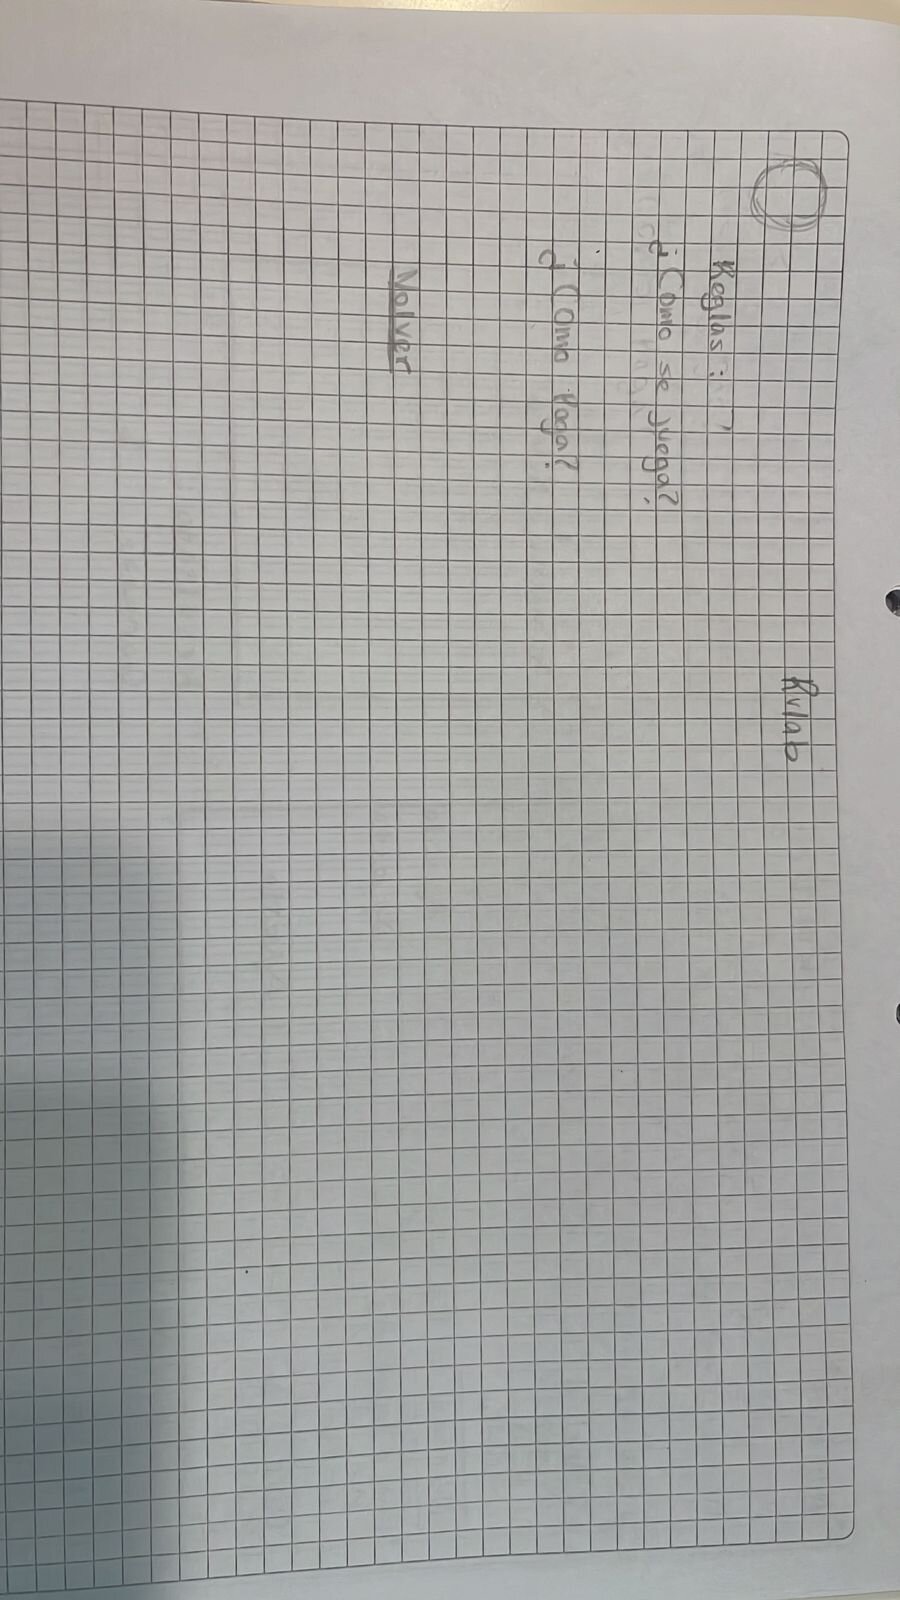 Rulab
Reglas:
¿Como se juega?
¿Como Paga?
Volver